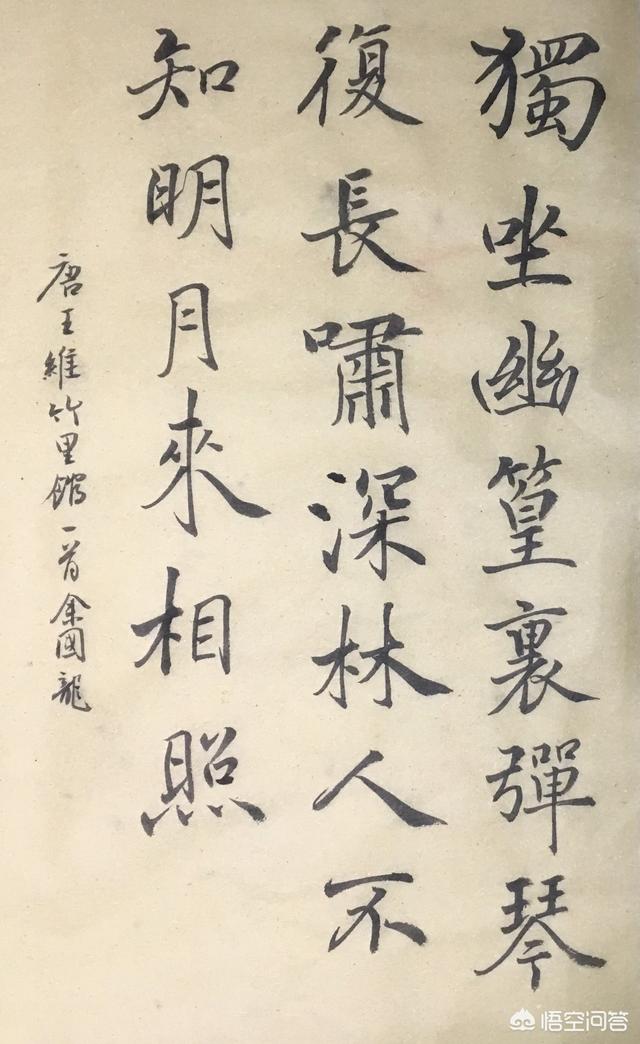 獨坐幽篁裏彈琴
復長嘯深林人不
知明月來相照
唐王維竹里館一首余國龍
悟空问答